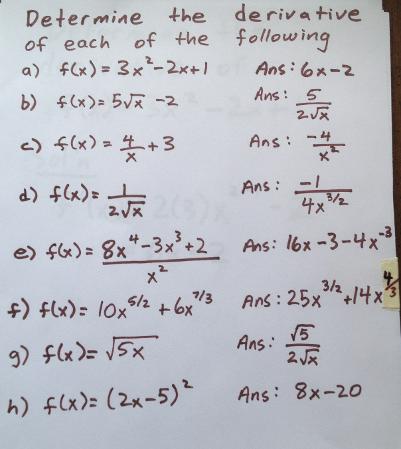 Determine the derivative
of each of the following
a) f(x) = 3x²-2x+1 Ans: 6x-2
b) f(x) = 5√x -2 Ans: 5/2√x
c) f(x) = 4/x + 3 Ans: -4/x²
d) f(x) = 1/2√x Ans: -1/4x^3/2
e) f(x) = 8x⁴-3x³+2/x² Ans: 16x-3-4x⁻³
f) f(x) = 10x^5/2 + 6x^7/3 Ans: 25x^3/2 + 14x^4/3
g) f(x) = √5x Ans: √5/2√x
h) f(x) = (2x-5)² Ans: 8x-20